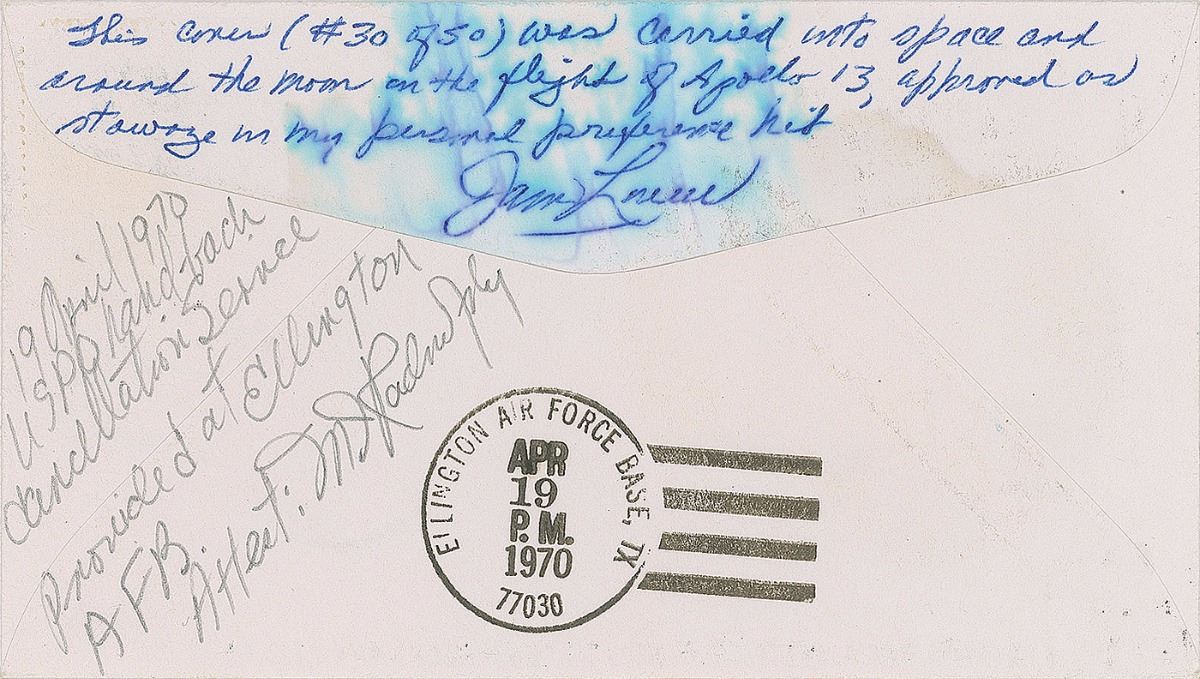 This cover (#30 of 50) was carried into space and
around the moon on the flight of Apollo 13, approved as
stowage in my personal preference kit
James Lovell
19 April 1970
USPO hand back
cancellation service
Provided at Ellington
AFB.
Attest:
ELLINGTON AIR FORCE BASE, TX
APR
19
P.M.
1970
77030